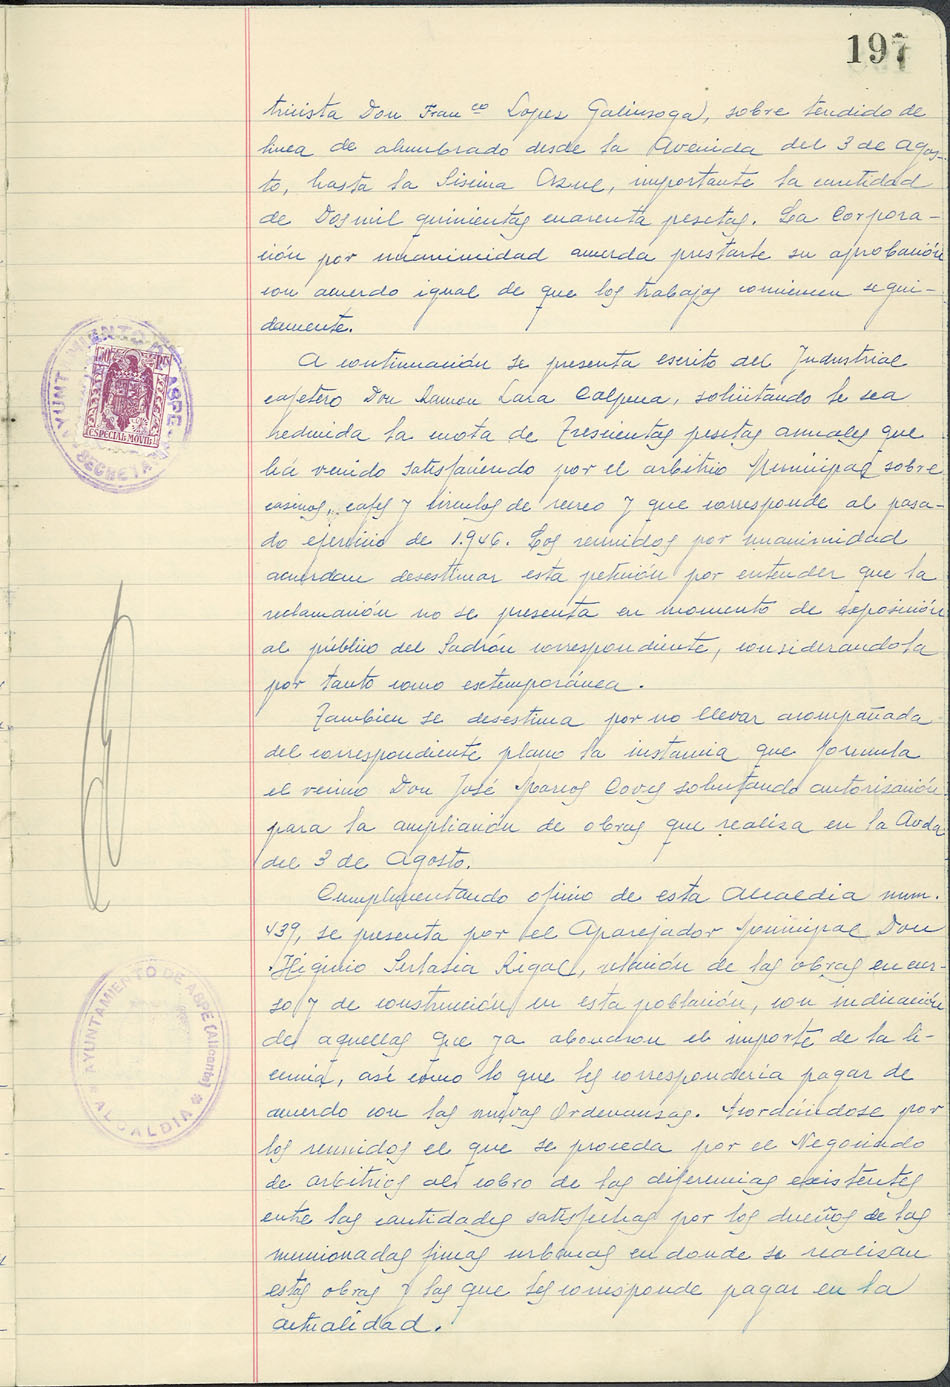 197
tricista Don Fran<sup>co</sup> Lopez Galinsoga), sobre tendido de
linea de alumbrado desde la Avenida del 3 de Agos-
to, hasta la Sisina Azul, importante la cantidad
de Dosmil quinientas cuarenta pesetas. La Corpora-
ción por unanimidad acuerda prestarle su aprobación
con acuerdo igual de que los trabajos comiencen segui-
damente.
A continuación se presenta escrito del Industrial
cafetero Don Ramon Lara Calpena, solicitando le sea
reducida la cuota de Trescientas pesetas anuales que
há venido satisfaciendo por el arbitrio Municipal sobre
casinos, cafes y circulos de recreo y que corresponde al pasa-
do ejercicio de 1.946. Los reunidos por unanimidad
acuerdan desestimar esta petición por entender que la
reclamación no se presenta en momento de exposición
al público del Padrón correspondiente, considerandola
por tanto como extemporánea.
Tambien se desestima por no llevar acompañada
del correspondiente plano la instancia que formula
el vecino Don José Marcos Coves solicitando autorización
para la ampliación de obras que realiza en la Avda
del 3 de Agosto.
Cumplimentando oficio de esta Alcaldia num.
439, se presenta por el Aparejador Municipal Don
Higinio Perlasia Rigal, relación de las obras en cur-
so y de construcción en esta población, con indicación
de aquellas que ya abonaron el importe de la li-
cencia, asé como lo que les correspondería pagar de
acuerdo con las nuevas Ordenanzas. Acordándose por
los reunidos el que se proceda por el Negociado
de arbitrios al cobro de las diferencias existentes
entre las cantidades satisfechas por los dueños de las
mencionadas fincas urbanas en donde se realizan
estas obras y las que les corresponde pagar en la
actualidad.
AYUNTAMIENTO DE ASPE
SECRETARIA
ESPECIAL MÓVIL
AYUNTAMIENTO DE ASPE (Alicante)
ALCALDIA